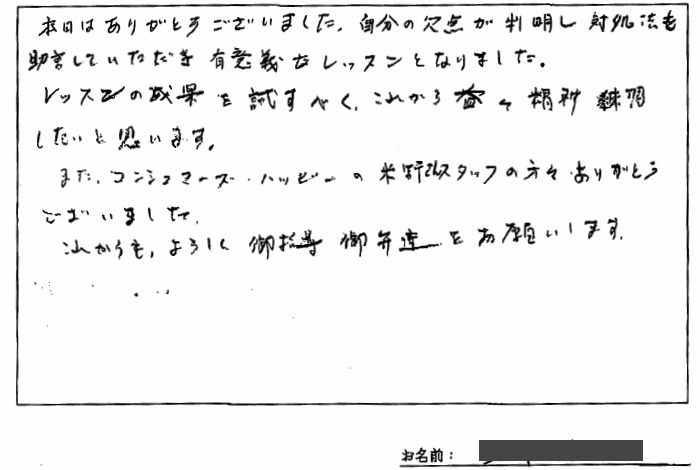 本日はありがとうございました。自分の欠点が判明し対処法も
助言していただき有意義なレッスンとなりました。
レッスンの成果を試すべく、これから益々練習
したいと思います。
また、コンシューマーズ・ハッピーの米野スタッフの方々ありがとう
ございました。
これからも、よろしく御指導御弁達をお願いします。
お名前：